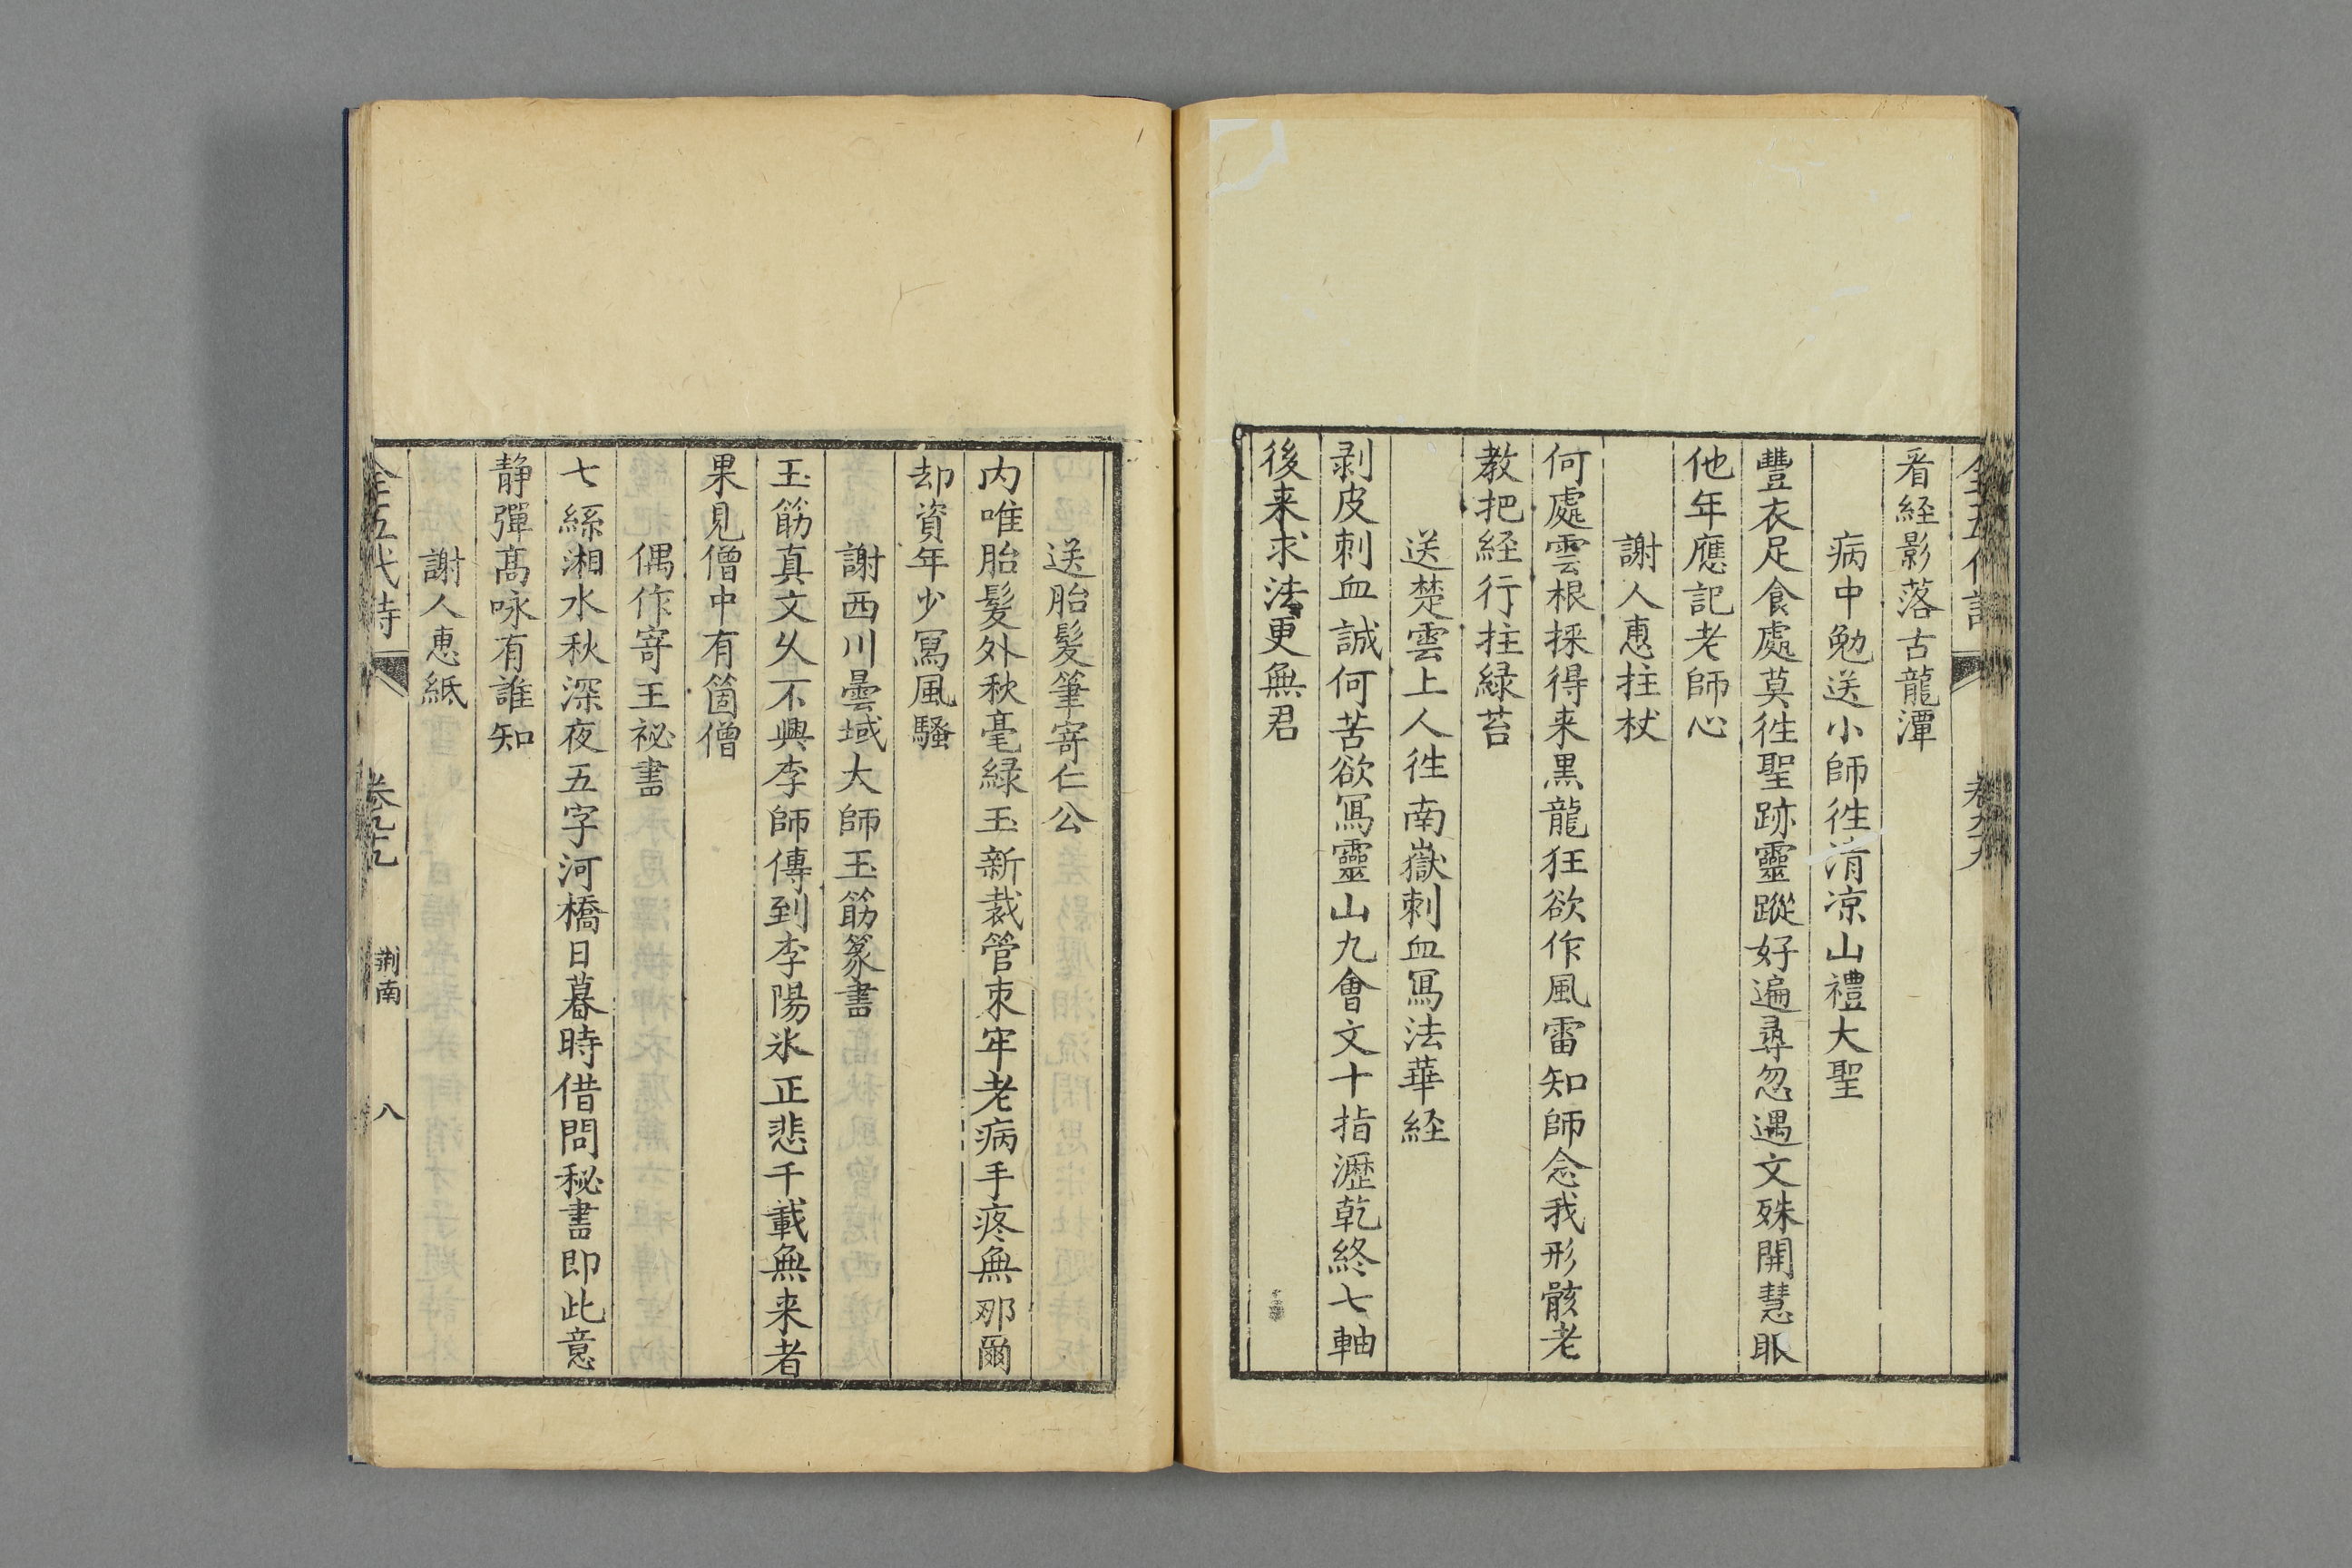 看経影落古龍潭
病中勉送小師徃清凉山禮大聖
豐衣足食處莫徃聖跡靈蹤好遍尋忽遇文殊開慧眼
他年應記老師心
謝人惠拄杖
何處雲根採得来黒龍狂欲作風雷知師念我形骸老
教把経行拄緑苔
送楚雲上人徃南嶽刺血冩法華経
剥皮刺血誠何苦欲冩靈山九會文十指瀝乾終七軸
後来求法更無君
送胎髮筆寄仁公
内唯胎髮外秋毫緑玉新裁管束牢老病手疼無那爾
却資年少冩風騷
謝西川曇域大師玉筯篆書
玉筯真文久不興李師傳到李陽氷正悲千載無来者
果見僧中有箇僧
偶作寄王祕書
七絲湘水秋深夜五字河橋日暮時借問秘書即此意
静彈髙咏有誰知
謝人惠紙
全五代詩 荆南 八